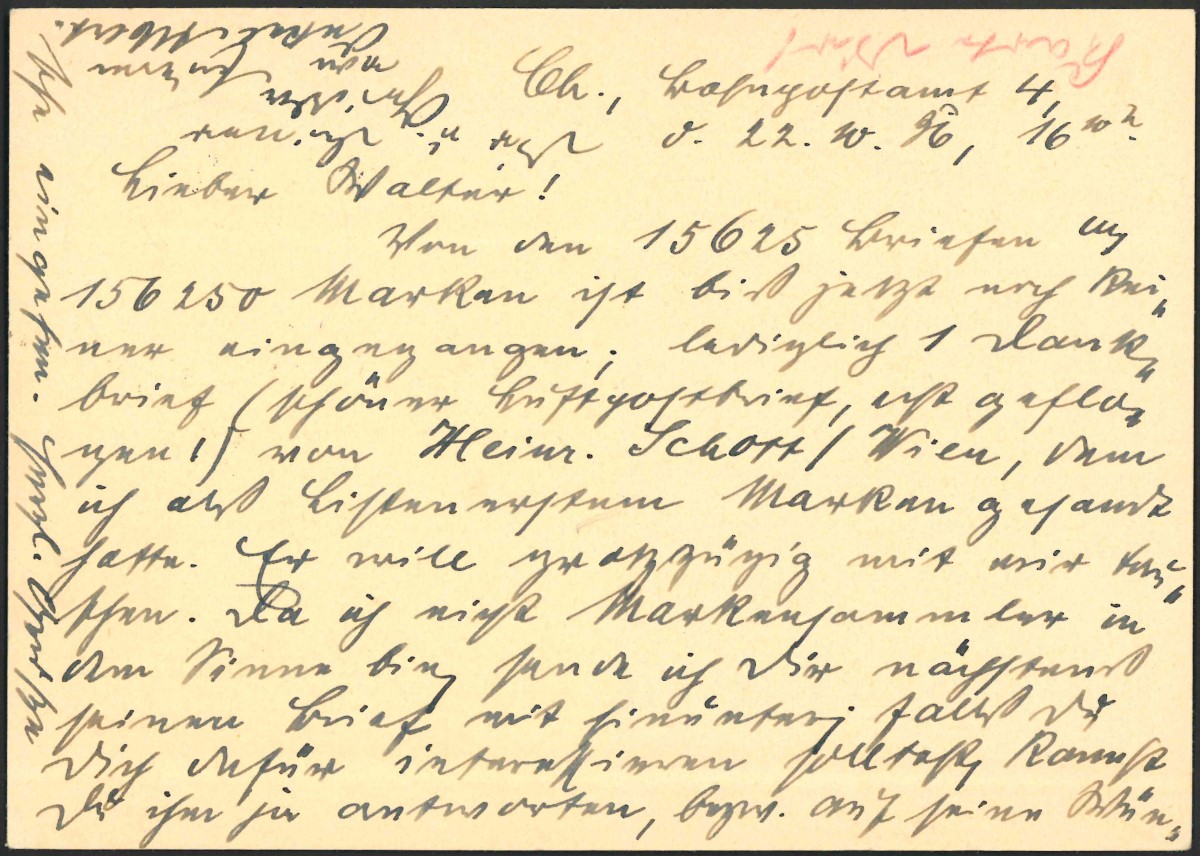 Ch., Bahnpostamt 4,
d. 22. 10. 36, 16 Uhr
Lieber Walter!
Von den 15625 Briefen m.
156250 Marken ist bis jetzt noch kei-
ner eingegangen; lediglich 1 Dank-
brief (schöner Luftpostbrief, echt geflo-
gen!) von Heinr. Schott / Wien, dem
ich als Listenerstem Marken gesandt
hatte. Er will großzügig mit mir tau-
schen. Da ich nicht Markensammler in
dem Sinne bin, sende ich Dir nächstens
seinen Brief mit hinunter; falls Du
Dich dafür interessieren solltest, kannst
Du ihm ja antworten, bezw. auf seine Wün-
von